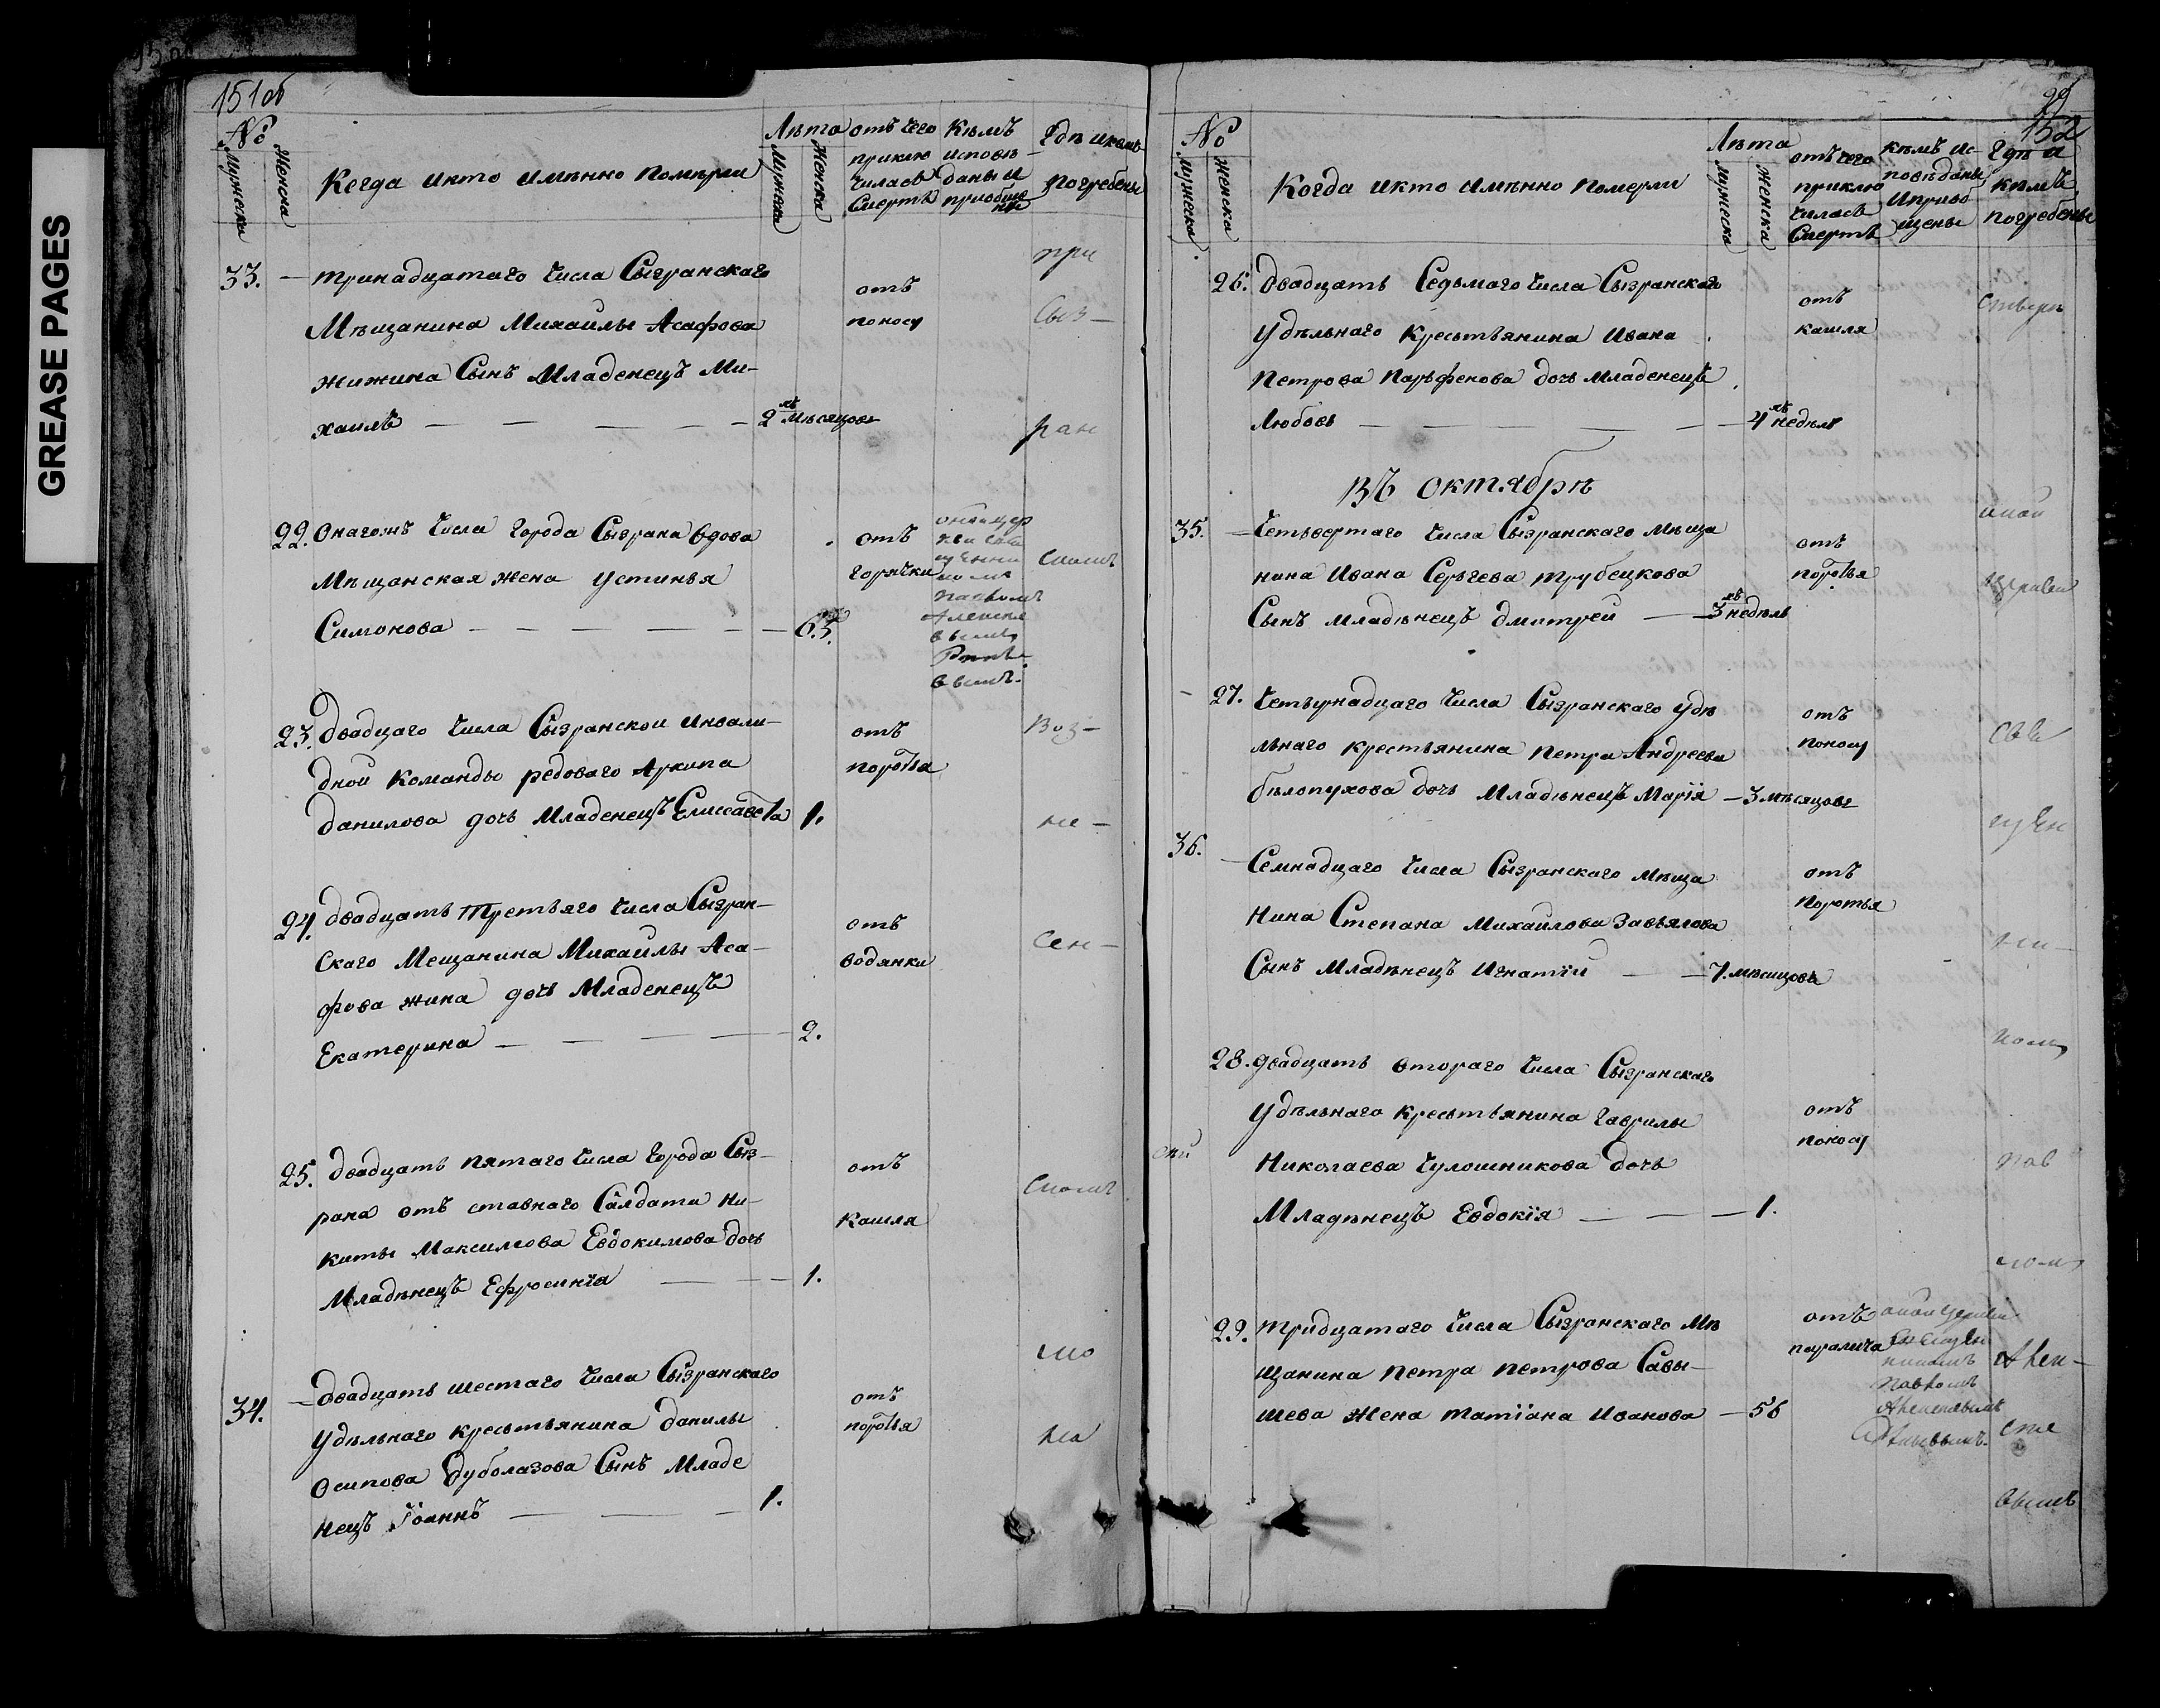 GREASE PAGES
151об
№
Мужеска
Женска
Когда икто имѣнно померли
Лѣта
Мужеска
Женска
отъ чего
приклю
чилась
Смерть
Кѣмъ
исповѣ-
даны и
приобще
ны
Гдѣ икѣмъ
погребены
33. — тринадцатаго числа Сызранскаго
Мѣщанина Михаилы Асафова
жижина Сынъ Младенецъ Ми-
хаилъ — — — — — 2 мѣсяцовъ
отъ
поносу
22. Онагожъ Числа города Сызрана вдова
Мѣщанская жена устинья
Симонова — — — — — 65.
отъ
горячки
23. двадцаго числа Сызранской инвали-
дной Команды редоваго Архипа
данилова дочь Младенецъ Елисавета 1.
отъ
поротья
24. двадцать третьяго числа Сызран-
скаго Мещанина Михаилы Аса-
фова жина дочь Младенецъ
Екатерина — — — — 2.
отъ
водянки
25. двадцать пятаго числа города Сыз-
рана отъ ставнаго Салдата Ни-
киты Максимова Евдокимова дочь
Младѣнецъ Ефросинїа — — — 1.
отъ
Кашля
34. — двадцать шестаго числа Сызранскаго
удѣльнаго крестьянина данилы
Осипова Дуболазова Сынъ Младе
нецъ Іоаннъ — — — 1.
отъ
поротья
при
Сыз-
ран
Скомъ
Воз-
не-
Сен-
Скомъ
на
152
№
Мужеска
Женска
Когда икто имѣнно померли
Лѣта
Мужеска
Женска
отъ чего
приклю
чилась
Смерть
кѣмъ ис-
повѣданы
иприоб
щены
Гдѣ и
кѣмъ
погребены
26. двадцать Седьмаго числа Сызранскаго
удѣльнаго крестьянина Ивана
Петрова Парфенова дочь младенецъ
Любовь — — — — 4 недѣль
отъ
кашля
Въ октябрѣ
35. — Четьвертаго числа Сызранскаго мѣща
нина Ивана Сергѣева трубецкова
Сынъ младѣнецъ дмитрей — 3 недѣль
отъ
поротья
27. Четырнадцаго числа Сызранскаго удѣ
льнаго крестьянина петра Андреева
бѣлопухова дочь Младѣнецъ Марїя — 3 мѣсяцовъ
отъ
поносу
36. — Семнадцаго числа Сызранскаго мѣща
нина Степана Михайлова Завьялова
Сынъ Младѣнецъ Игнатїй — — 7. мѣсяцовъ
отъ
поротья
28. двадцать втораго числа Сызранскаго
удѣльнаго крестьянина гаврилы
Николаева Чулошникова дочь
Младѣнецъ Евдокїя — — — 1.
отъ
поносу
29. тридцатаго числа Сызранскаго Мѣ
щанина петра петрова Савы-
шева жена татїана Иванова — 56
отъ
паралича
оной церкви
Священ
никомъ
Павломъ
оной
церкви
Свя
щен
ни-
комъ
Пав
ломъ
Алек-
сѣе
вымъ